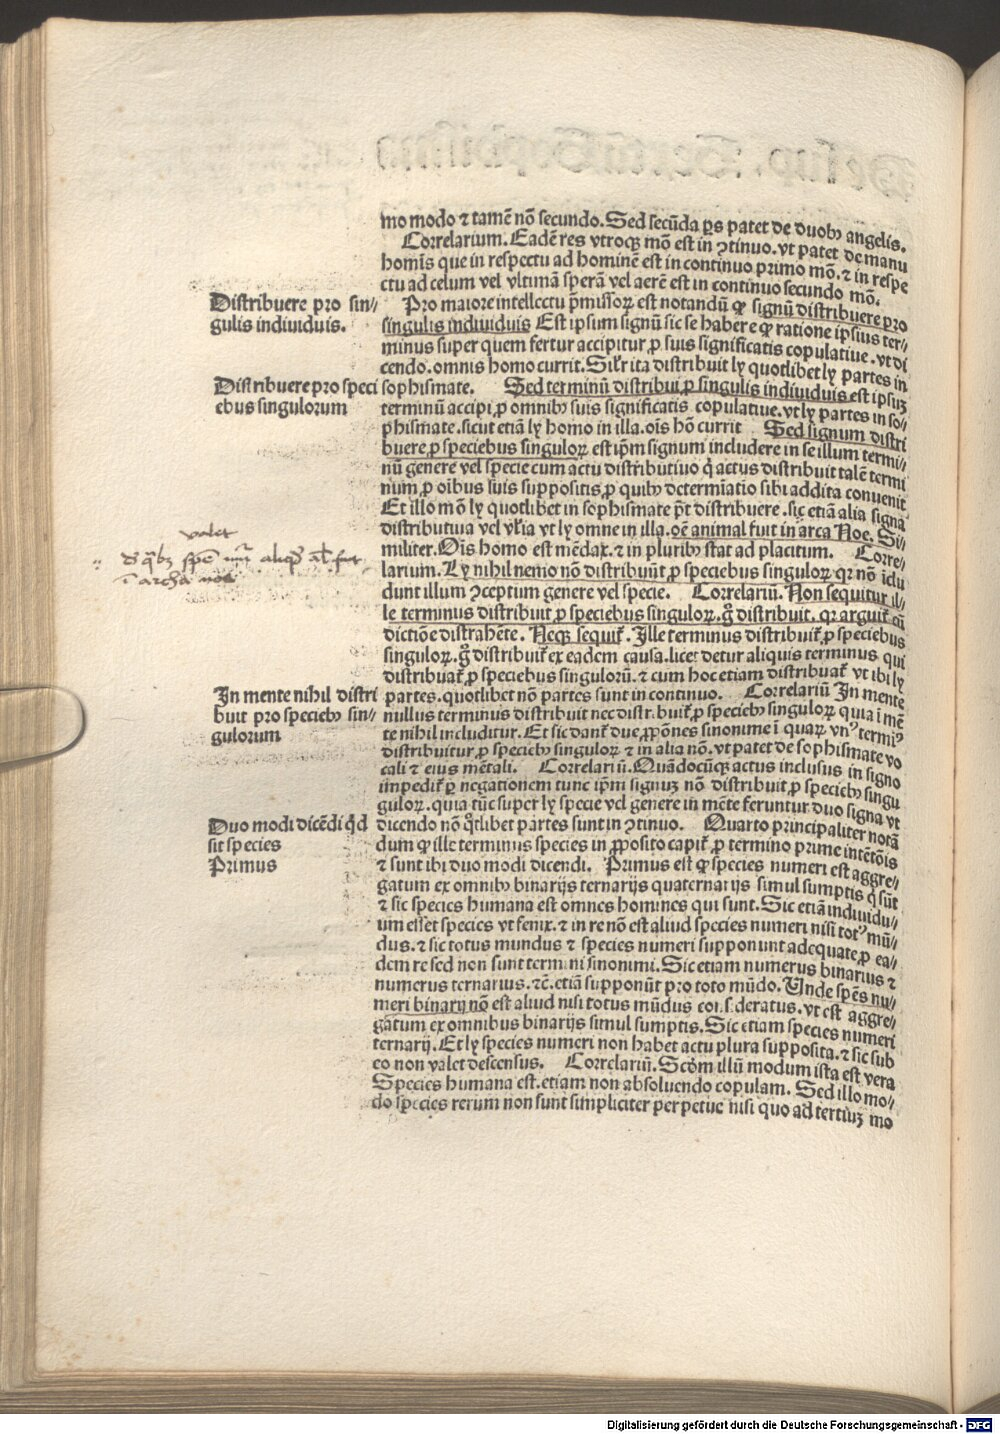 mo modo ⁊ tamē nō secundo. Sed secūda ꝑs patet de duobꝫ angelis.
Correlarium. Eadē res vtroqꝫ mō est in ꝯtinuo. vt patet de manu
homīs que in respectu ad hominē est in continuo primo mō. ⁊ in respe
ctu ad celum vel vltimā sperā vel aerē est in continuo secundo mō.
Distribuere pro sin⸗
gulis indiuiduis.
Pro maiore intellectu p̄missoꝝ est notandū ꝙ signū distribuere pro
singulis indiuiduis Est ipsum signū sic se habere ꝙ ratione ipsius ter⸗
minus super quem fertur accipitur ꝓ suis significatis copulatiue. vt di
cendo. omnis homo currit. Silr̄ ita distribuit ly quotlibet ly partes in
Distribuere pro speci
ebus singulorum
sophismate. Sed terminū distribui ꝓ singulis indiuiduis est ipsuꝫ
terminū accipi ꝓ omnibꝫ suis significatis copulatiue. vt ly partes in so⸗
phismate. sicut etiā ly homo in illa. oīs hō currit Sed signum distri
buere ꝓ speciebus singuloꝝ est ip̄m signum includere in se illum termi⸗
nū genere vel specie cum actu distributiuo q̇ actus distribuit talē termi
num ꝓ oībus suis suppositis ꝓ quibꝫ determīatio sibi addita conuenit
Et illo mō ly quotlibet in sophismate p̄t distribuere. sic etiā alia signa
distributiua vel vl̄ia vt ly omne in illa. oē animal fuit in arca Noe. Si⸗
valet
militer. Oīs homo est mēdax. ⁊ in pluribꝫ stat ad placitum. Corre⸗
larium. Ly nihil nemo nō distribuūt ꝓ speciebus singuloꝝ qꝛ nō īclu
dunt illum ꝯceptum genere vel specie. Correlariū. Non sequitur il⸗
le terminus distribuit ꝓ speciebus singuloꝝ. g̊ distribuit. qꝛ arguit̄ cū
dictiōe distrahēte. Neqꝫ sequit̄. Ille terminus distribuit̄ ꝓ speciebus
singuloꝝ. g̊ distribuit̄ ex eadem causa. licet detur aliquis terminus qui
distribuat̄ ꝓ speciebus singulorū. ⁊ cum hoc etiam distribuat̄ vt ibi ly
In mente nihil distri
buit pro speciebꝫ sin⸗
gulorum
partes. quotlibet nō partes sunt in continuo. Correlariū In mente
nullus terminus distribuit nec distribuit̄ ꝓ speciebꝫ singuloꝝ quia ī mē
te nihil includitur. Et sic dant̄ due ꝓpōnes sinonime ī quaꝝ vnꝰ termiꝰ
distribuitur ꝓ speciebꝫ singuloꝝ ⁊ in alia nō. vt patet de sophismate vo
cali ⁊ eius mētali. Correlariū. Quādocūqꝫ actus inclusus in signo
impedit̄ ꝑ negationem tunc ip̄m signuꝫ nō distribuit ꝓ speciebꝫ singu
guloꝝ. quia tūc super ly specie vel genere in mēte feruntur duo signa vt
Duo modi dicēdi qͥd
sit species
Primus
dicendo nō qͦtlibet partes sunt in ꝯtinuo. Quarto principaliter notā
dum ꝙ ille terminus species in ꝓposito capit̄ ꝓ termino prime intētōis
⁊ sunt ibi duo modi dicendi. Primus est ꝙ species numeri est aggre⸗
gatum ex omnibꝫ binarijs ternarijs quaternarijs simul sumptis q̇ sūt
⁊ sic species humana est omnes homines qui sunt. Sic etiā indiuidu⸗
um esset species vt fenix. ⁊ in re nō est aliud species numeri nisi totꝰ mū⸗
dus. ⁊ sic totus mundus ⁊ species numeri supponunt adequate ꝓ ea⸗
dem re sed non sunt termini sinonimi. Sic etiam numerus binarius ⁊
numerus ternarius. ⁊c̄. etiā supponūt pro toto mūdo. Unde spēs nu⸗
meri binarij nō est aliud nisi totus mūdus consideratus. vt est aggre⸗
gatum ex omnibus binarijs simul sumptis. Sic etiam species numeri
ternarij. Et ly species numeri non habet actu plura supposita. ⁊ sic sub
eo non valet descensus. Correlariū. Scd̄m illū modum ista est vera
Species humana est. etiam non absoluendo copulam. Sed illo mo⸗
do species rerum non sunt simpliciter perpetue nisi quo ad tertiuꝫ mo
Digitalisierung gefördert durch die Deutsche Forschungsgemeinschaft - DFG